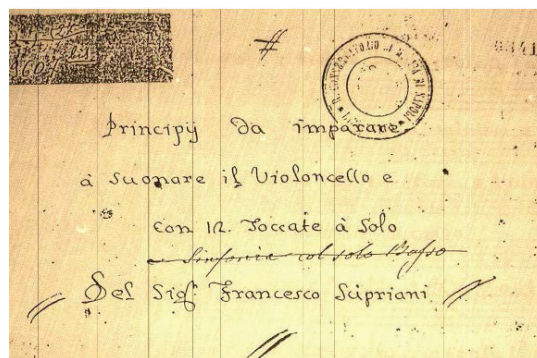 Principij da imparare
à suonare il Violoncello e
con 12. Toccate à Solo
Sinfonia col solo Basso
Del Sig.r Francesco Scipriani